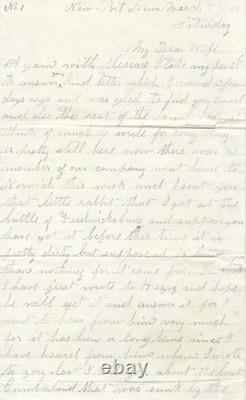 No. 1
New Port News March 7
Saturday
My Dear Wife
Again with pleasure I take my pen
to answer your kind letter which I received a few
days ago and was glad to find you smart
and also the rest of the family
think of much to write for every thing
is pretty still here now there was a
member of our company went home to
Norwich this week and I sent you
that little rabbit that I got at the
battle of Fredricksburg and suppose you
have got it before this time it is
pretty dirty but suppose it is better
than nothing for it came from
I have just wrote to and hope
he will get it and answer it for I
want to hear from him very much
for it has been a long time since I
have heared from him when I wrote
to you last I about the boat
Cumberland that was sunk by the
ebay